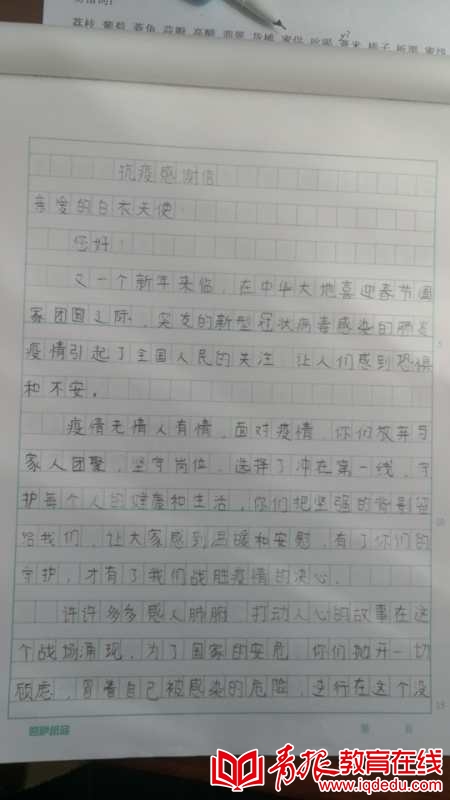 荔枝 葡萄
抗疫感谢信
亲爱的白衣天使：
您好！
又一个新年来临，在中华大地喜迎春节阖
家团圆之际，突发的新型冠状病毒感染的肺炎
疫情引起了全国人民的关注，让人们感到恐惧
和不安。
疫情无情人有情，面对疫情，你们放弃与
家人团聚，坚守岗位，选择了冲在第一线，守
护每个人的健康和生活，你们把坚强的背影留
给我们，让大家感到温暖和安慰，有了你们的
守护，才有了我们战胜疫情的决心。
许许多多感人肺腑、打动人心的故事在这
个战场涌现，为了国家的安危，你们抛开一切
顾虑，冒着自己被感染的危险，逆行在这个没
5
10
15
第 页
青报教育在线
www.iqdedu.com